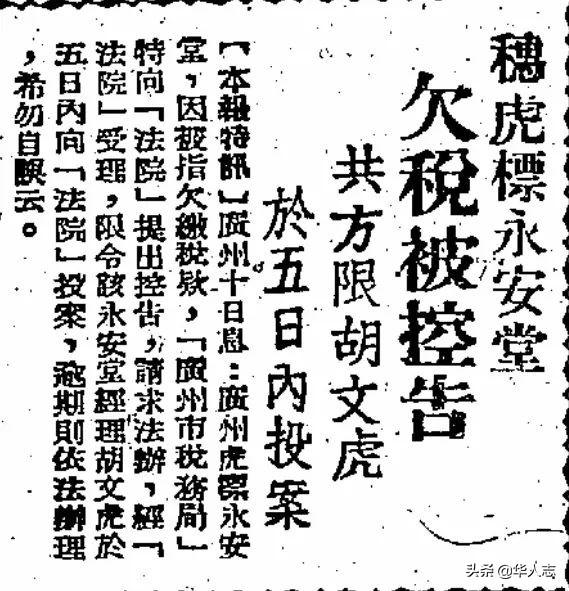 穗虎標永安堂
欠稅被控告
共方限胡文虎
於五日內投案
【本報特訊】廣州十日息：廣州虎標永安
堂，因被指欠繳稅欵，「廣州市稅務局」
特向「法院」提出控告，請求法辦，經「
法院」受理，限令該永安堂經理胡文虎於
五日內向「法院」投案，逾期則依法辦理
，希勿自誤云。
头条 @华人志